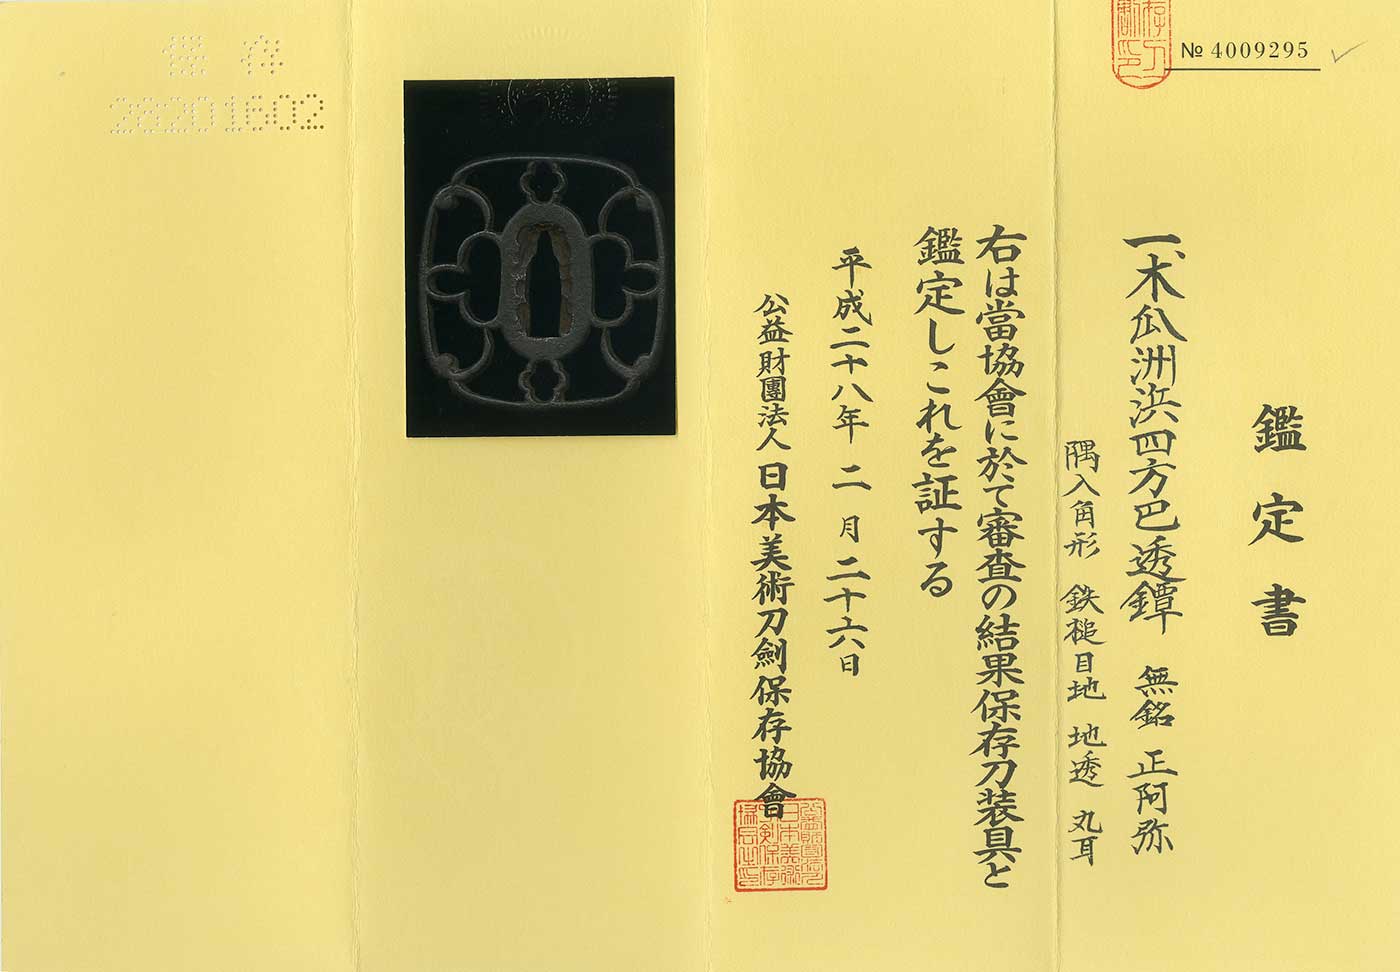 № 4009295
鑑定書
一、木瓜洲浜四方巴透鐔 無銘 正阿弥
隅入角形 鉄槌目地 地透 丸耳
右は當協會に於て審査の結果保存刀装具と
鑑定しこれを証する
平成二十八年 二月 二十六日
公益財團法人 日本美術刀劍保存協會
保存
28201602